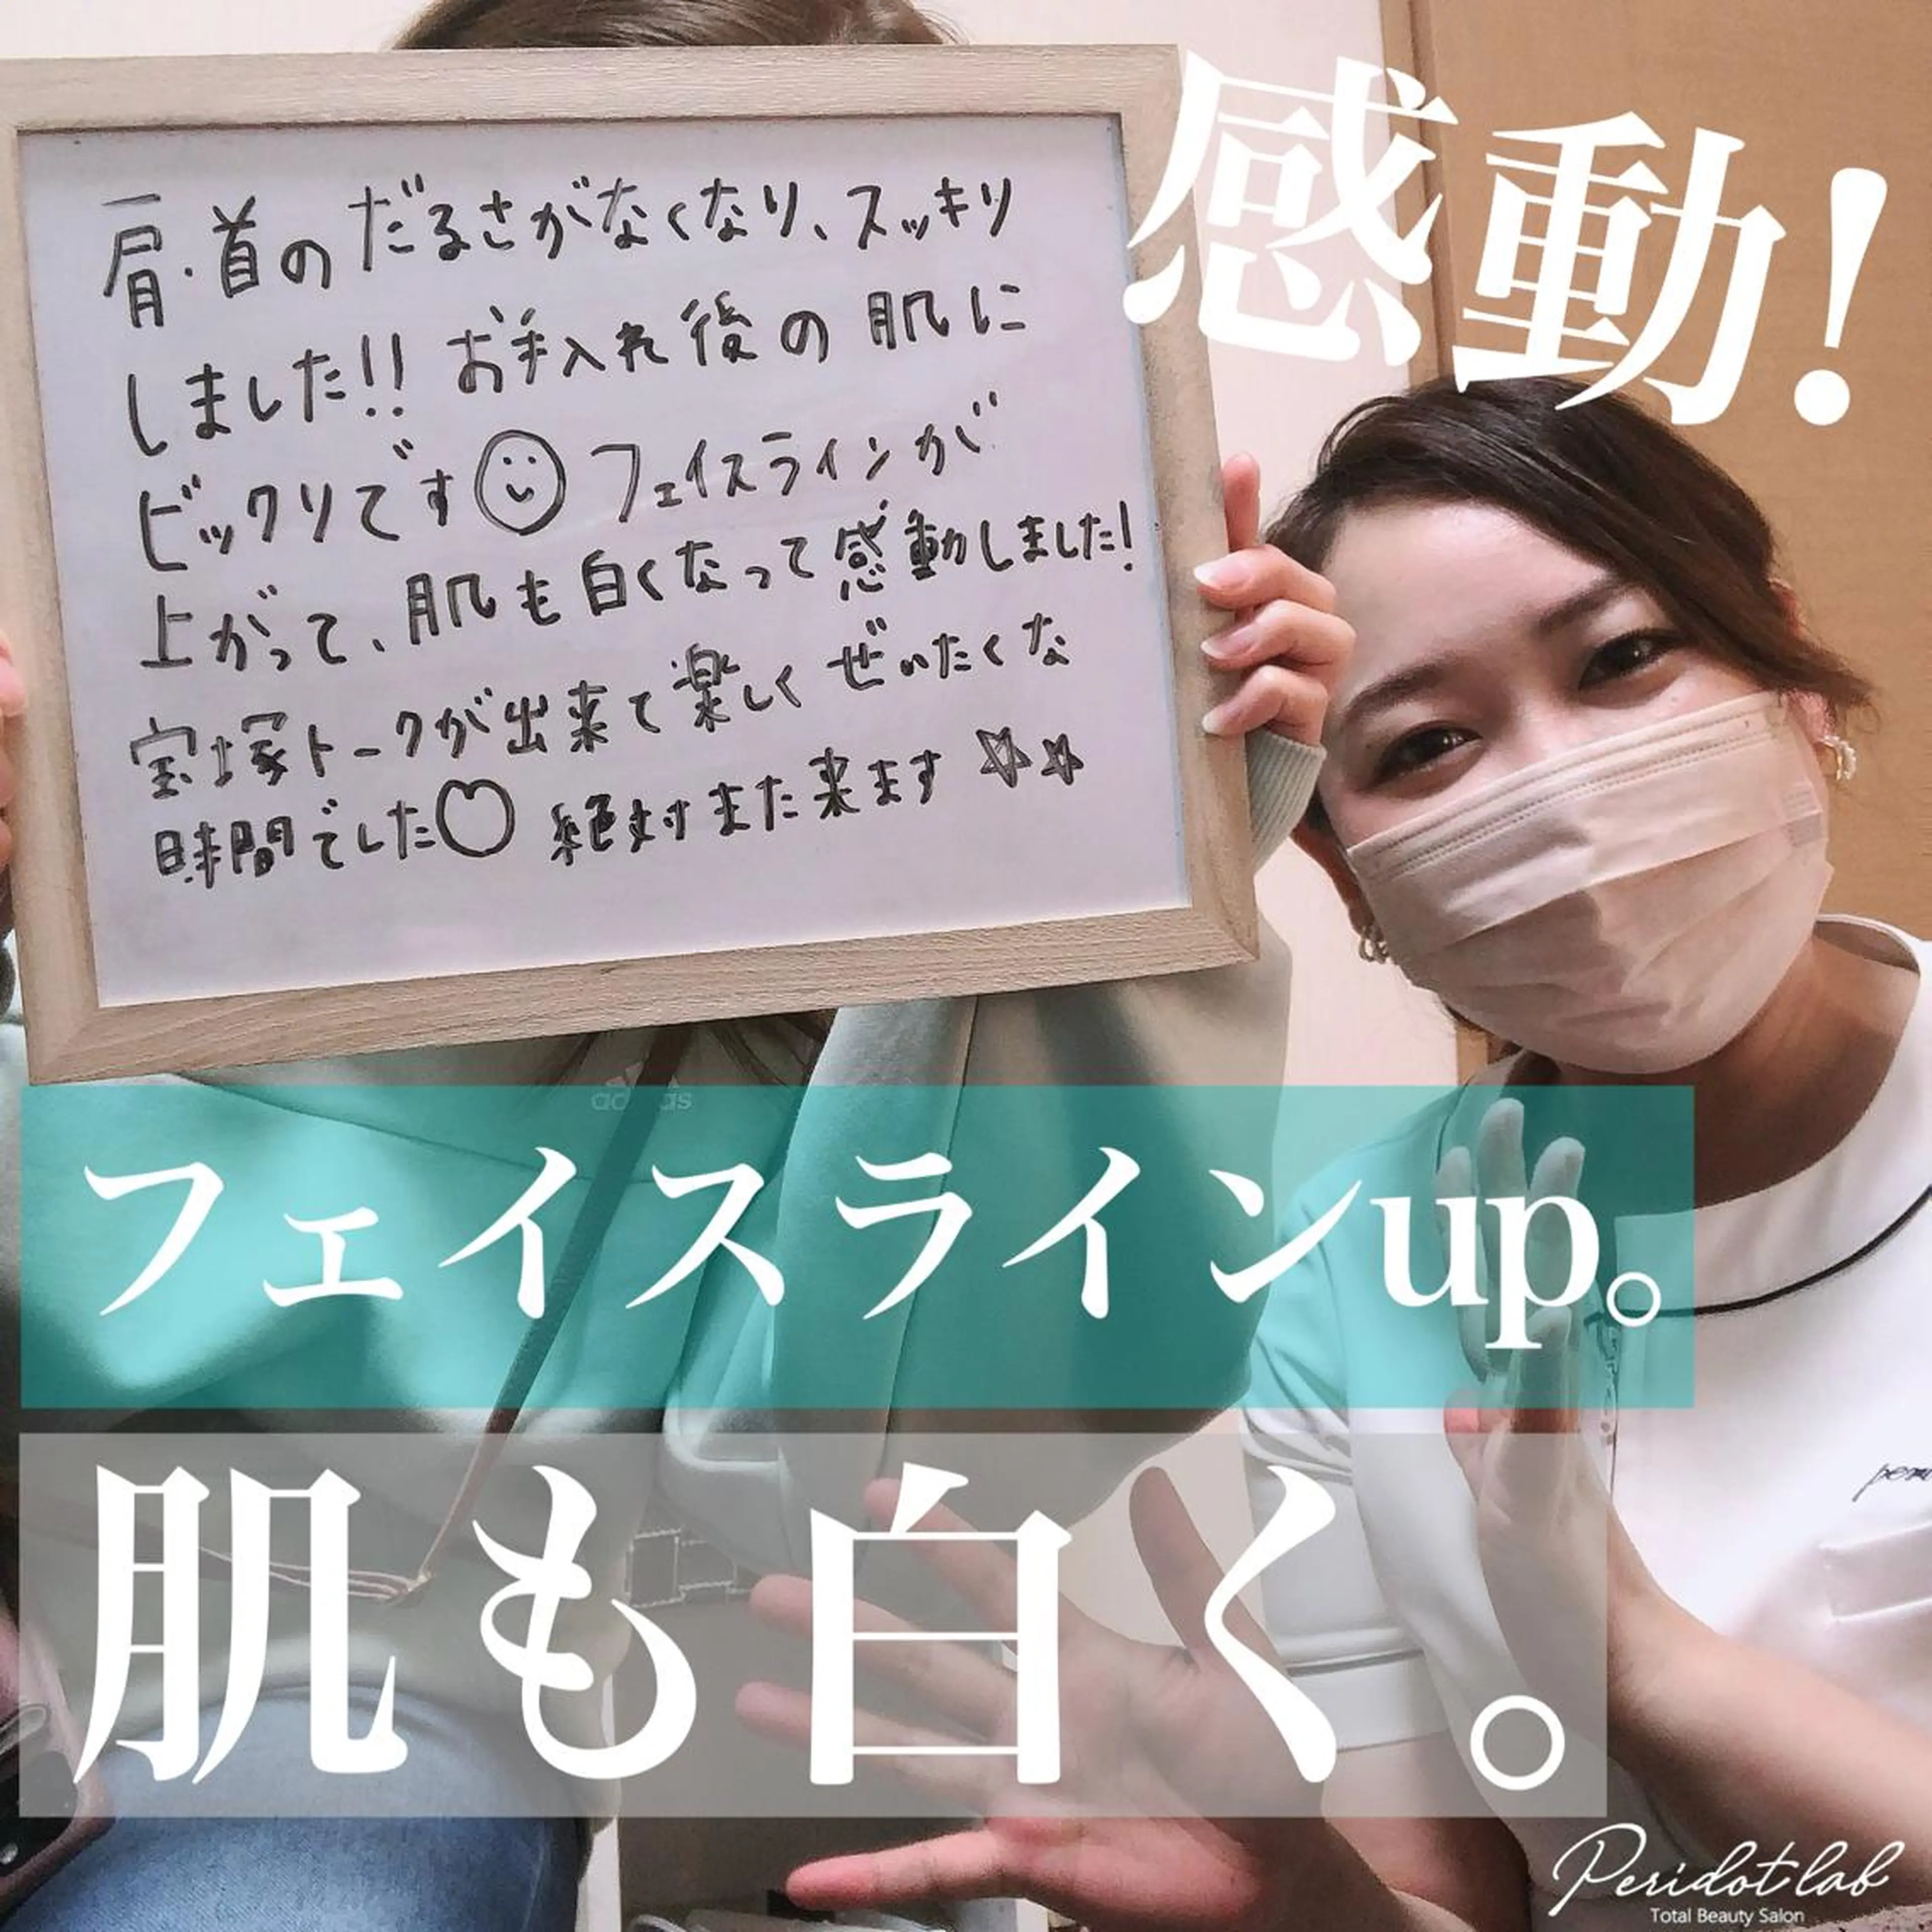 感動!
肩・首のだるさがなくなり、スッキリ
しました!! お手入れ後の肌に
ビックリです フェイスラインが
上がって、肌も白くなって感動しました!
宝塚トークが出来て楽しくぜいたくな
時間でした 絶対また来ます
adidas
フェイスラインup。
肌も白く。
Peridot lab
Total Beauty Salon